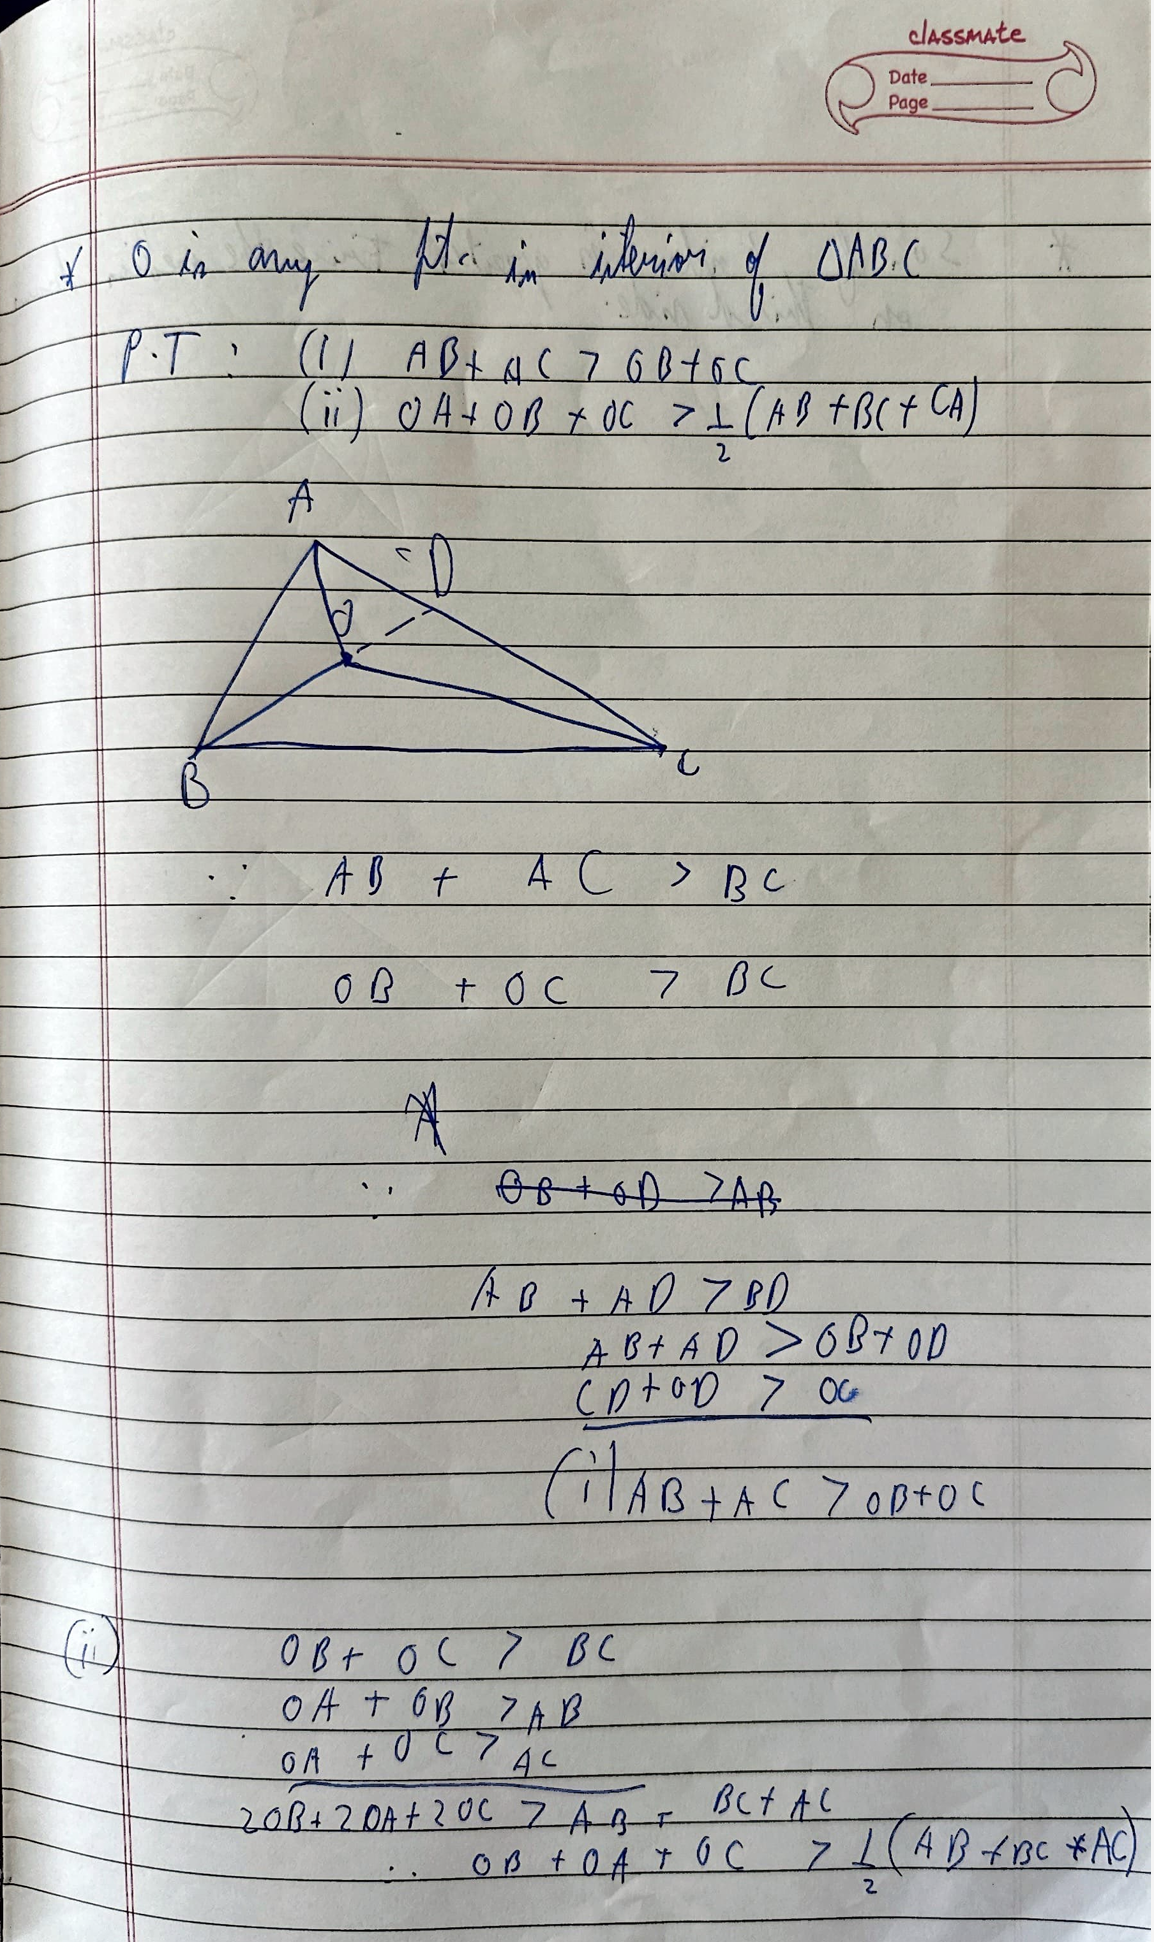 classmate
Date
Page
* O is any pt. in interior of ΔABC
P.T : (i) AB + AC > OB + OC
(ii) OA + OB + OC > 1/2 (AB + BC + CA)
A
D
O
B
C
∵ AB + AC > BC
OB + OC > BC
∵ OB + OD > AB
AB + AD > BD
AB + AD > OB + OD
CD + OD > OC
(i) AB + AC > OB + OC
(ii) OB + OC > BC
OA + OB > AB
OA + OC > AC
2OB + 2OA + 2OC > AB + BC + AC
∴ OB + OA + OC > 1/2 (AB + BC + AC)